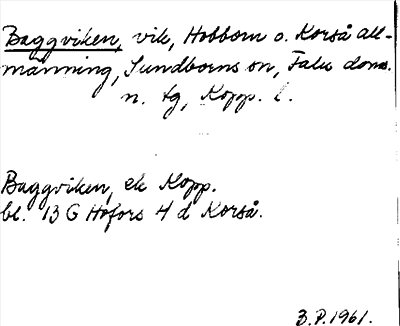 Baggviken, vik, Hobborn o. Korså all-
männing, Sundborns sn, Falu doms.
n. tg, Kopp. l.
Baggviken, ek Kopp.
bl. 13 G Hofors 4 d Korså.
B.P. 1961.